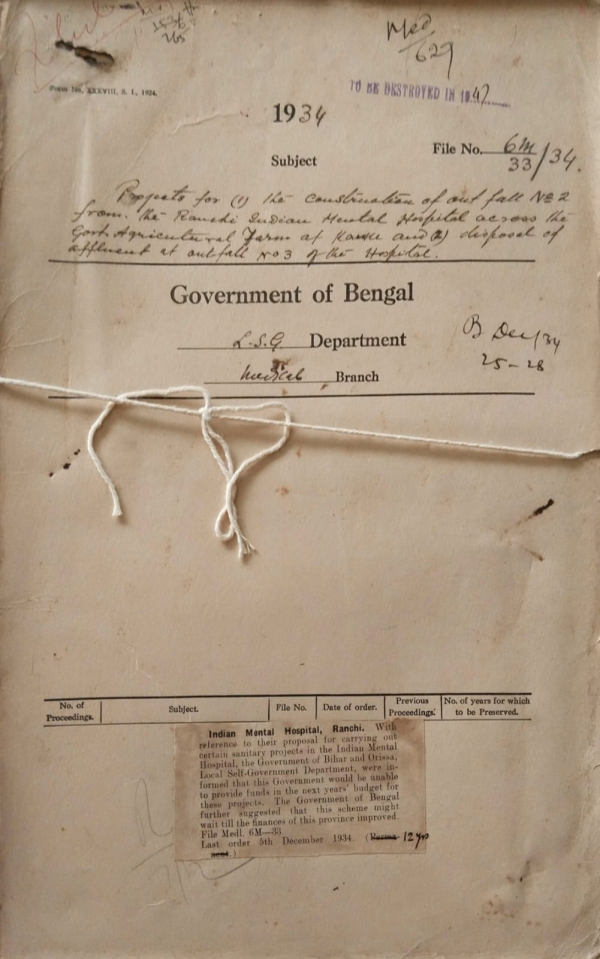 Med
629
Form No. XXXVIII, S. I., 1924.
TO BE DESTROYED IN 1947
1934
File No. 6M/33/34.
Subject
Projects for (1) the construction of out fall No 2
from the Ranchi Indian Mental Hospital across the
Govt. Agricultural Farm at Kanke and (2) disposal of
affluent at outfall No 3 of the Hospital.
Government of Bengal
L.S.G Department
Medical Branch
B Dec/34
25-28
No. of Proceedings.
Subject.
File No.
Date of order.
Previous Proceedings.
No. of years for which to be Preserved.
Indian Mental Hospital, Ranchi. With
reference to their proposal for carrying out
certain sanitary projects in the Indian Mental
Hospital, the Government of Bihar and Orissa,
Local Self-Government Department, were in-
formed that this Government would be unable
to provide funds in the next years' budget for
these projects. The Government of Bengal
further suggested that this scheme might
wait till the finances of this province improved.
File Medl. 6M—33.
Last order 5th December 1934. (Perma- 12 yrs
nent.)